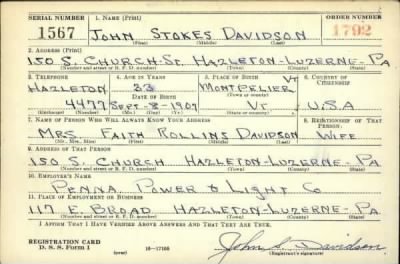 SERIAL NUMBER 1. NAME (Print) ORDER NUMBER
1567 JOHN STOKES DAVIDSON 1792
(First) (Middle) (Last)
2. ADDRESS (Print)
150 S. CHURCH-ST. HAZLETON-LUZERNE-PA
(Number and street or R. F. D. number) (Town) (County) (State)
3. TELEPHONE 4. AGE IN YEARS 5. PLACE OF BIRTH 6. COUNTRY OF CITIZENSHIP
HAZLETON 33 MONTPELIER VT
DATE OF BIRTH (Town or county)
4477 SEPT-8-1907 VT U.S.A
(Exchange) (Number) (Mo.) (Day) (Yr.) (State or country)
7. NAME OF PERSON WHO WILL ALWAYS KNOW YOUR ADDRESS 8. RELATIONSHIP OF THAT PERSON
MRS. FAITH ROLLINS DAVIDSON WIFE
(Mr., Mrs., Miss) (First) (Middle) (Last)
9. ADDRESS OF THAT PERSON
150 S. CHURCH HAZLETON-LUZERNE-PA
(Number and street or R. F. D. number) (Town) (County) (State)
10. EMPLOYER'S NAME
PENNA. POWER & LIGHT CO
11. PLACE OF EMPLOYMENT OR BUSINESS
117 E. BROAD HAZLETON-LUZERNE-PA.
(Number and street or R. F. D. number) (Town) (County) (State)
I AFFIRM THAT I HAVE VERIFIED ABOVE ANSWERS AND THAT THEY ARE TRUE.
REGISTRATION CARD
D. S. S. FORM 1 (over) 16-17105 John S. Davidson
(Registrant's signature)